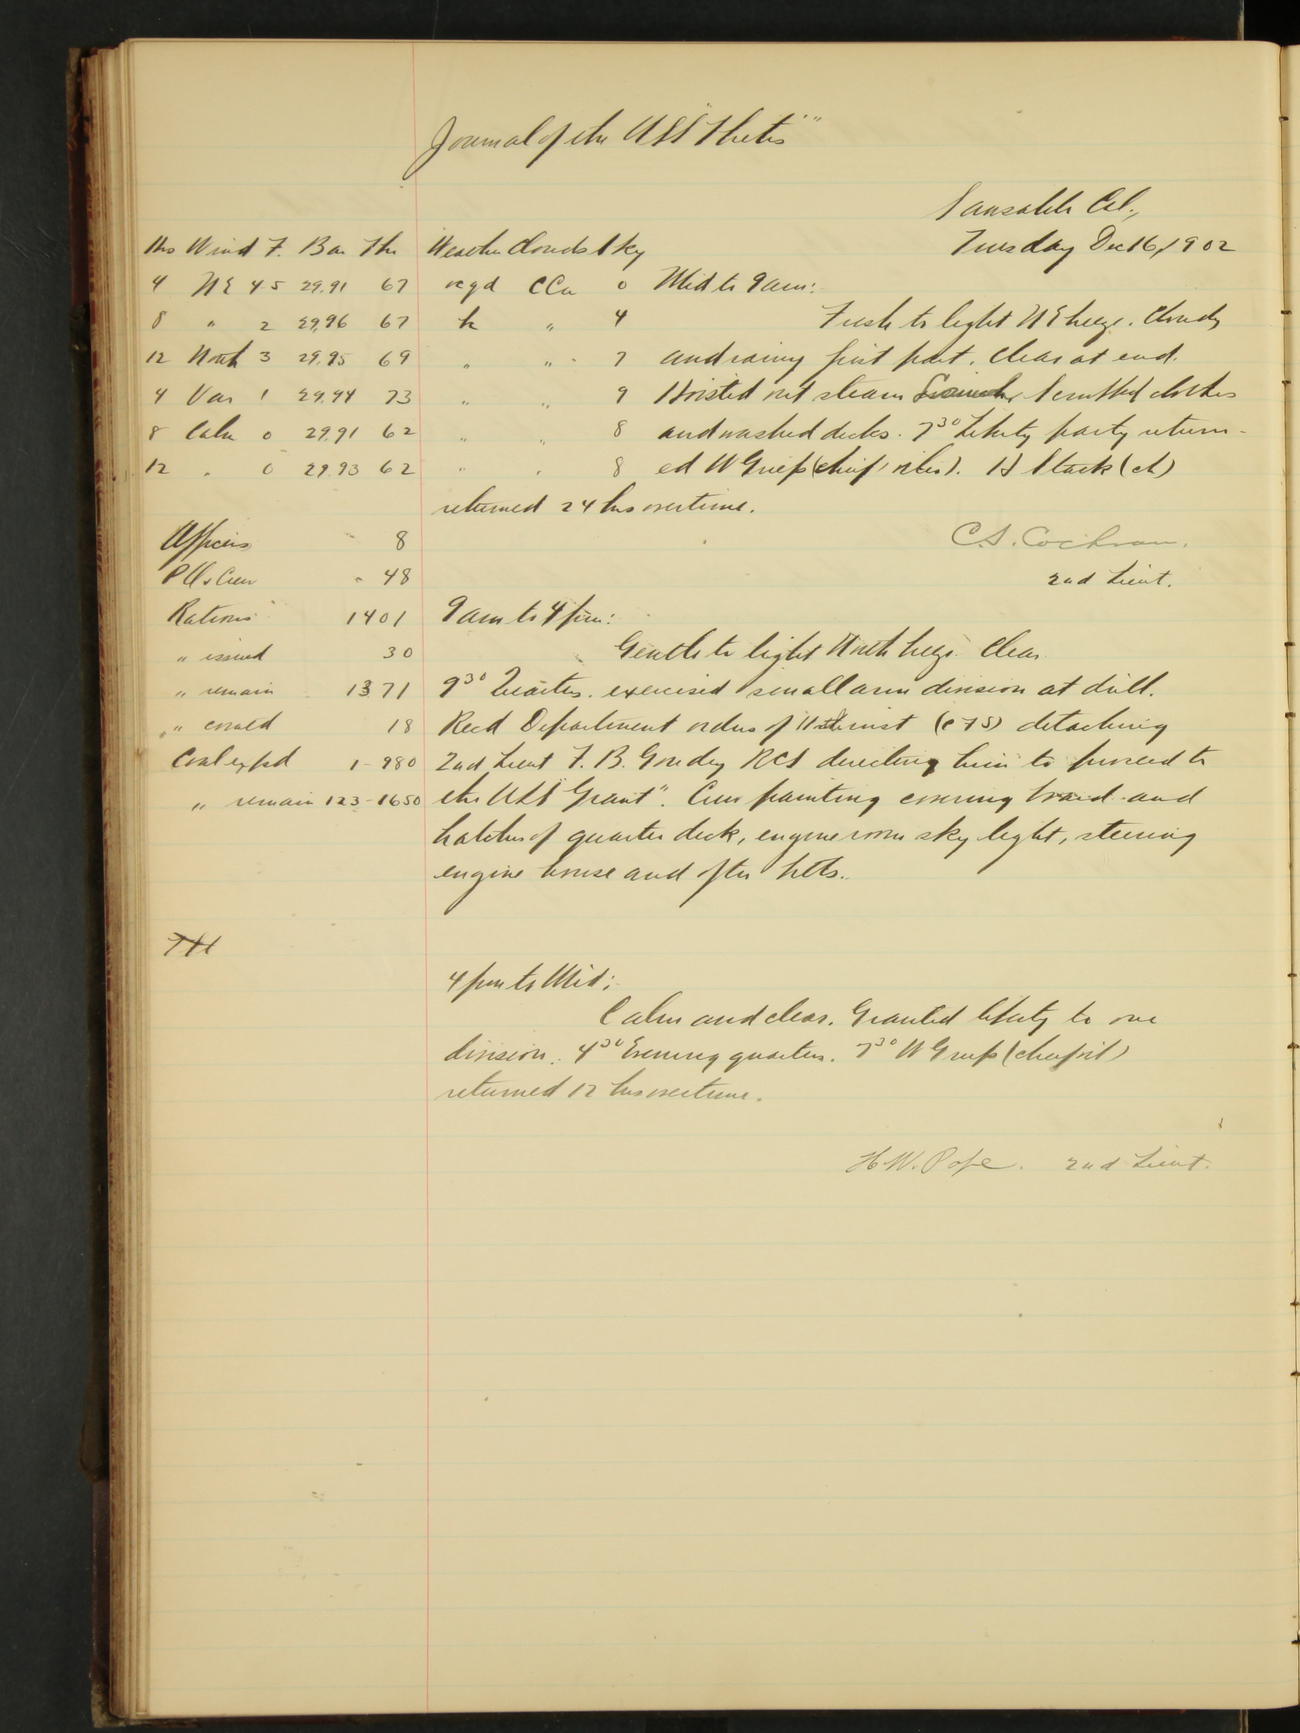 Journal of the USS "Thetis"
Sausalito Cal.,
Tuesday Dec 16, 1902
Hrs Wind F. Bar Thr Weather Clouds Sky
4 NE 4 5 29.91 67 cgd CCu 0 Mid to 9 am:
8 " 2 29.96 67 " 4 Fresh to light NE breeze. Cloudy
12 North 3 29.95 69 " " 7 and rainy first part. Clear at end.
4 Var 1 29.94 73 " " 9 Hoisted out steam launch, scrubbed clothes
8 Calm 0 29.91 62 " " 8 and washed decks. 7 30 Liberty party return-
12 " 0 29.93 62 " " 8 ed W Grieps (chief). H Stack (ch)
returned 24 hrs overtime.
C.S. Cochran.
2nd Lieut.
Officers 8
P Os & Crew 48
Rations 1401
" issued 30
" remain 1371
" comtd 18
Coal expd 1-980
" remain 123-1650
9 am to 4 pm:
Gentle to light North breeze. Clear.
9 30 Quarters. exercised small arm division at drill.
Recd Department orders of 11th inst (C F S) detaching
2nd Lieut F. B. Goudey RCS directing him to proceed to
the USS "Grant". Crew painting covering board and
hatches of quarter deck, engine room sky light, steering
engine house and after bitts.
4 pm to Mid:
Calm and clear. Granted liberty to one
division. 4 30 Evening quarters. 7 30 W Grieps
returned 12 hrs overtime.
H. W. Pope. 2nd Lieut.